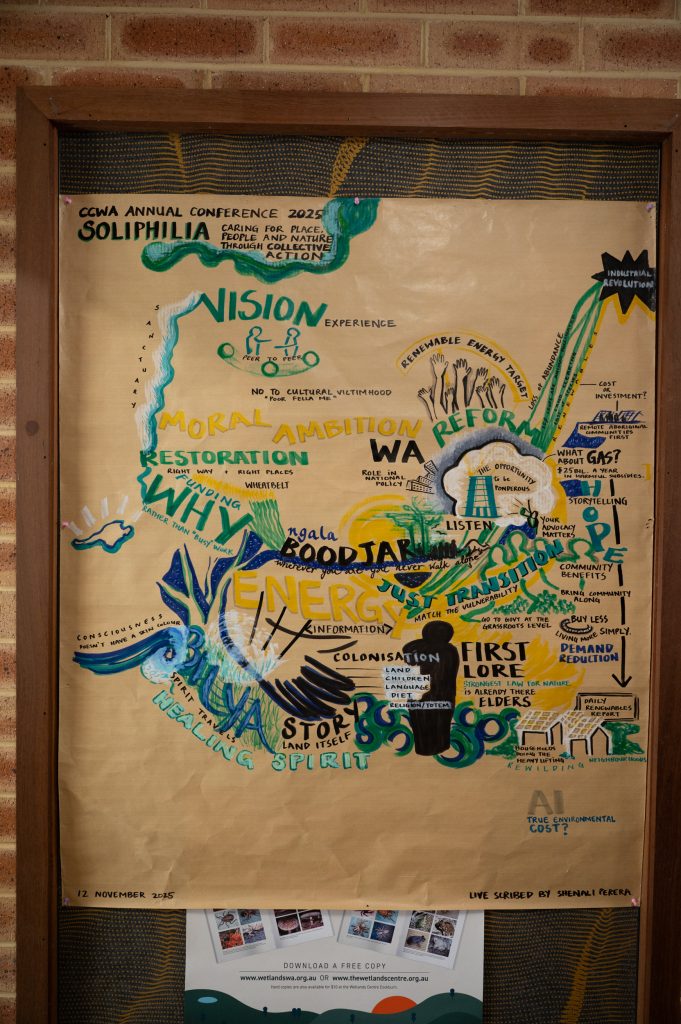 CCWA ANNUAL CONFERENCE 2025
SOLIPHILIA
CARING FOR PLACE,
PEOPLE AND NATURE
THROUGH COLLECTIVE
ACTION
INDUSTRIAL
REVOLUTION
SANCTUARY
VISION
EXPERIENCE
PEER TO PEER
RENEWABLE ENERGY TARGET
LOSS OF ABUNDANCE
NO TO CULTURAL VICTIMHOOD
"POOR FELLA ME"
COST
OR
INVESTMENT?
MORAL AMBITION
REFORM
REMOTE ABORIGINAL
COMMUNITIES
FIRST
RESTORATION
RIGHT WAY + RIGHT PLACES
WHEATBELT
WA
ROLE IN
NATIONAL
POLICY
WHAT
ABOUT GAS?
$25 BIL. A YEAR
IN HARMFUL SUBSIDIES.
THE OPPORTUNITY
to be
PONDEROUS
LISTEN
FUNDING
WHY
RATHER THAN "BUSY" WORK
HOPE
STORYTELLING
YOUR
ADVOCACY
MATTERS
ngala
BOODJAR
wherever you are you never walk alone
COMMUNITY
BENEFITS
ENERGY
<INFORMATION>
JUST TRANSITION
MATCH THE VULNERABILITY
BRING COMMUNITY
ALONG
GO TO GOVT AT THE
GRASSROOTS LEVEL
BUY LESS
LIVING MORE SIMPLY.
DEMAND
REDUCTION
CONSCIOUSNESS
DOESN'T HAVE A SKIN COLOUR
BILYA
SPIRIT TRAVELS
HEALING SPIRIT
COLONISATION
LAND
CHILDREN
LANGUAGE
DIET
RELIGION/TOTEM
STORY
LAND ITSELF
FIRST
LORE
STRONGEST LAW FOR NATURE
IS ALREADY THERE
ELDERS
DAILY
RENEWABLES
REPORT
HOUSEHOLDS
DOING THE
HEAVY LIFTING
REWILDING
NEIGHBOURHOODS
AI
TRUE ENVIRONMENTAL
COST?
12 NOVEMBER 2025
LIVE SCRIBED BY SHENALI PERERA
DOWNLOAD A FREE COPY
www.wetlandswa.org.au OR www.thewetlandscentre.org.au
Hard copies are also available for $10 at the Wetlands Centre Cockburn.